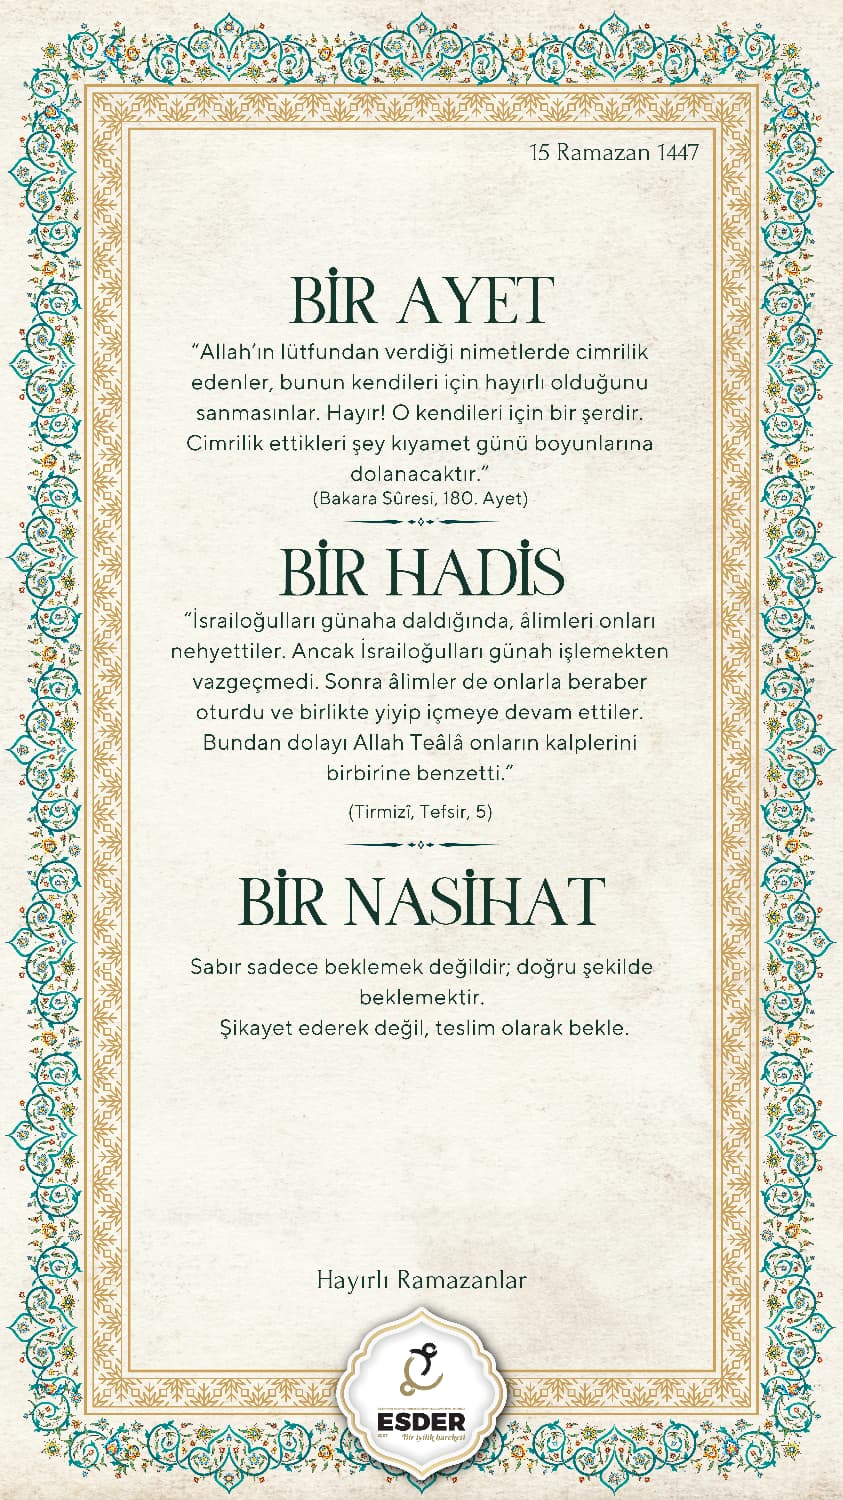 15 Ramazan 1447
BİR AYET
“Allah’ın lütfundan verdiği nimetlerde cimrilik
edenler, bunun kendileri için hayırlı olduğunu
sanmasınlar. Hayır! O kendileri için bir şerdir.
Cimrilik ettikleri şey kıyamet günü boyunlarına
dolanacaktır.”
(Bakara Sûresi, 180. Ayet)
BİR HADİS
“İsrailoğulları günaha daldığında, âlimleri onları
nehyettiler. Ancak İsrailoğulları günah işlemekten
vazgeçmedi. Sonra âlimler de onlarla beraber
oturdu ve birlikte yiyip içmeye devam ettiler.
Bundan dolayı Allah Teâlâ onların kalplerini
birbirine benzetti.”
(Tirmizî, Tefsir, 5)
BİR NASİHAT
Sabır sadece beklemek değildir; doğru şekilde
beklemektir.
Şikayet ederek değil, teslim olarak bekle.
Hayırlı Ramazanlar
ESDER
Bir iyilik hareketi